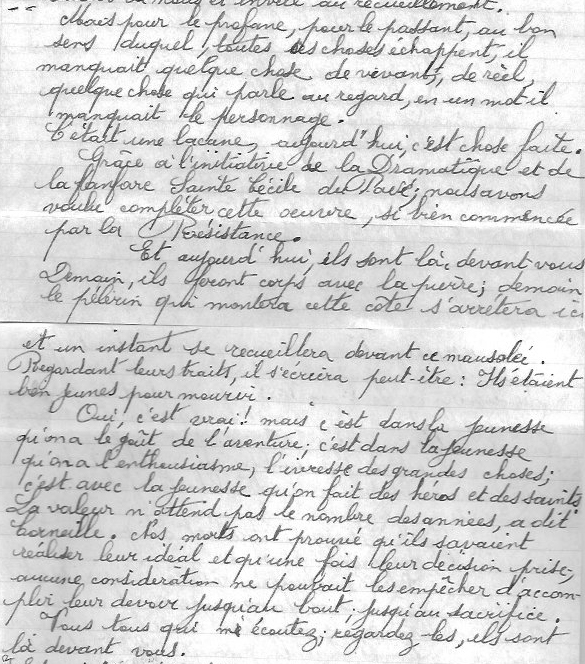 et invite au recueillement.
Mais pour le profane, pour le passant, au bon
sens duquel, toutes ces choses échappent, il
manquait quelque chose de vivant, de réel,
quelque chose qui parle au regard, en un mot il
manquait le personnage.
C'était une lacune, aujourd'hui, c'est chose faite.
Grâce à l'initiative de la Dramatique et de
la fanfare Sainte Cécile du            nous avons
voulu compléter cette oeuvre, si bien commencée
par la Résistance.
Et aujourd'hui, ils sont là, devant vous
Demain, ils feront corps avec la pierre; demain
le pélerin qui montera cette côte s'arrêtera ici
et un instant se recueillera devant ce mausolée.
Regardant leurs traits, il s'écriera peut-être: Ils étaient
bien jeunes pour mourir.
Oui! c'est vrai! mais c'est dans la jeunesse
qu'on a le goût de l'aventure; c'est dans la jeunesse
qu'on a l'enthousiasme, l'ivresse des grandes choses;
c'est avec la jeunesse qu'on fait des héros et des saints.
La valeur n'attend pas le nombre des années, a dit
Corneille. Nos morts ont prouvé qu'ils savaient
réaliser leur idéal et qu'une fois leur décision prise,
aucune considération ne pouvait les empêcher d'accom-
plir leur devoir jusqu'au bout; jusqu'au sacrifice.
Vous tous qui m'écoutez; regardez-les, ils sont
là devant vous.